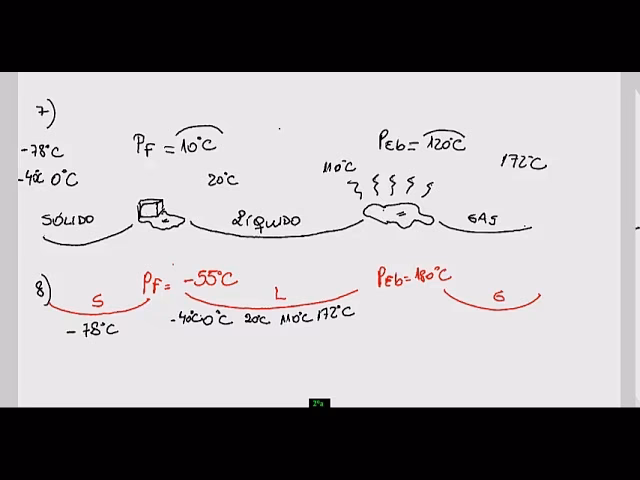 7)
-78°C Pf = 10°C PEb = 120°C 172°C
-40C 0°C 20°C 110°C
SÓLIDO LÍQUIDO GAS
8) S Pf = -55°C L PEb = 180°C G
-78°C -40°C 0°C 20°C 110°C 172°C
2ºa